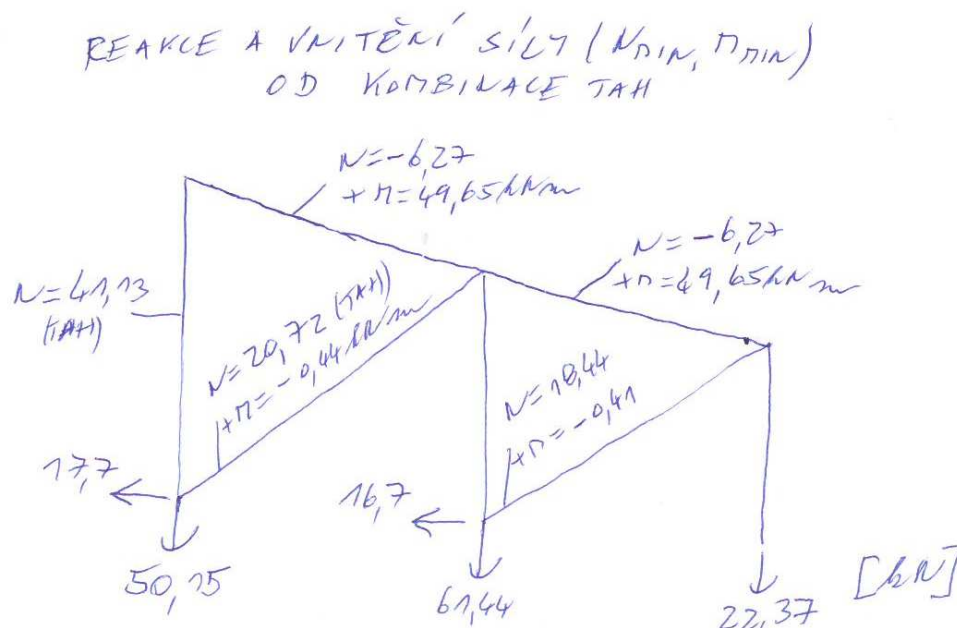 REAKCE A VNITŘNÍ SÍLY (NMIN, MMIN)
OD KOMBINACE TAH
N=-6,27
+M=49,65kNm
N=-6,27
+M=49,65kNm
N=41,13
(TAH)
N=20,72 (TAH)
+M=-0,44kNm
N=18,44
+M=-0,41
17,7
16,7
50,15
61,44
22,37
[kN]